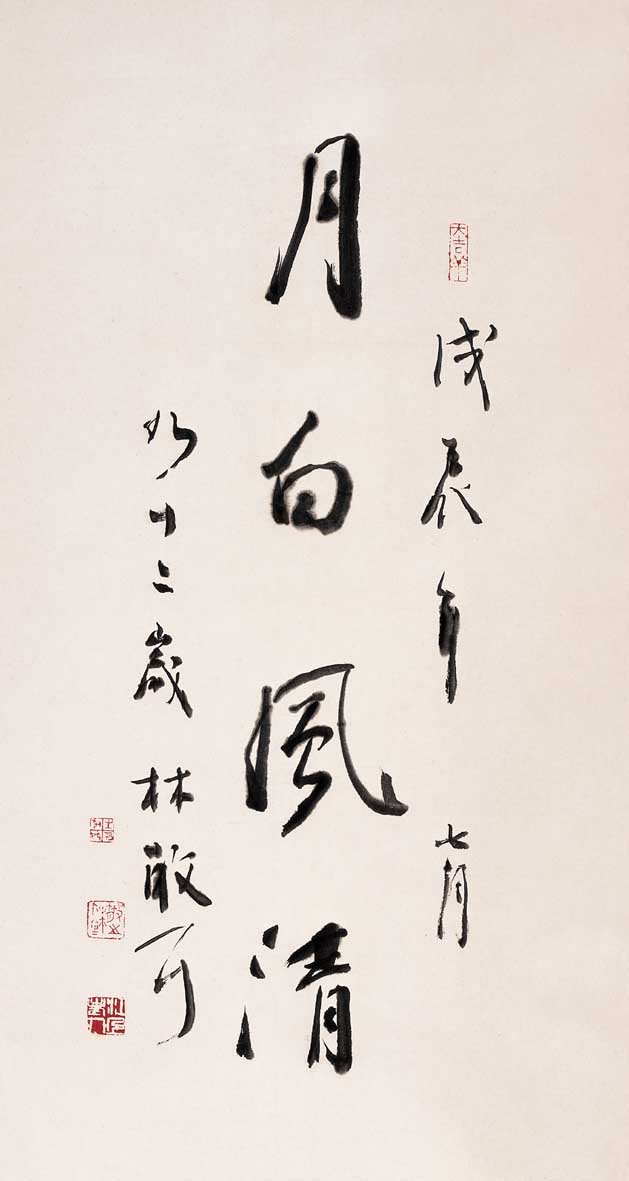 戊辰年 七月
月白風清
九十二歲 林